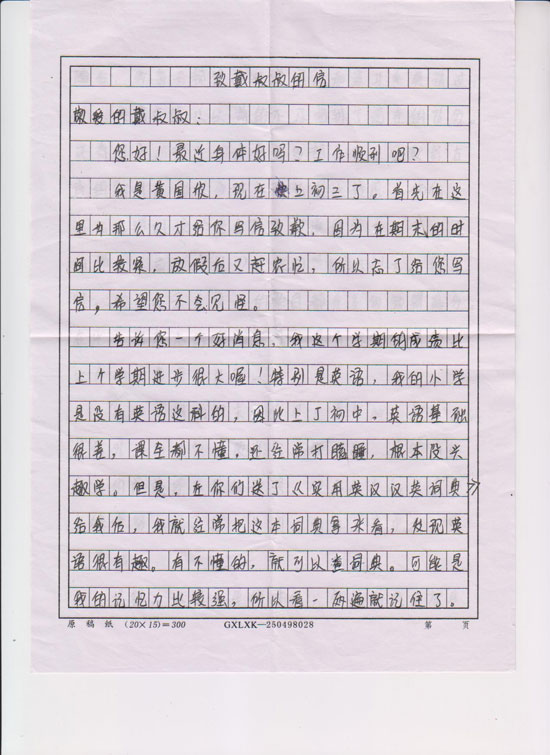 致戴叔叔的信
敬爱的戴叔叔：
您好！最近身体好吗？工作顺利吧？
我是黄国欣，现在快上初三了。首先在这
里为那么久才给你写信致歉，因为在期末的时
间比较紧，放假后又赶农忙，所以忘了给您写
信，希望您不会见怪。
告诉您一个好消息，我这个学期的成绩比
上个学期进步很大喔！特别是英语，我的小学
是没有英语这科的，因此上了初中，英语基础
很差，课堂都不懂，还经常打瞌睡，根本没兴
趣学。但是，在你们送了《实用英汉汉英词典》
给我后，我就经常把这本词典拿来看，发现英
语很有趣。有不懂的，就可以查词典。可能是
我的记忆力比较强，所以看一两遍就记住了。
原稿纸 (20×15)=300 GXLXK—250498028 第 页